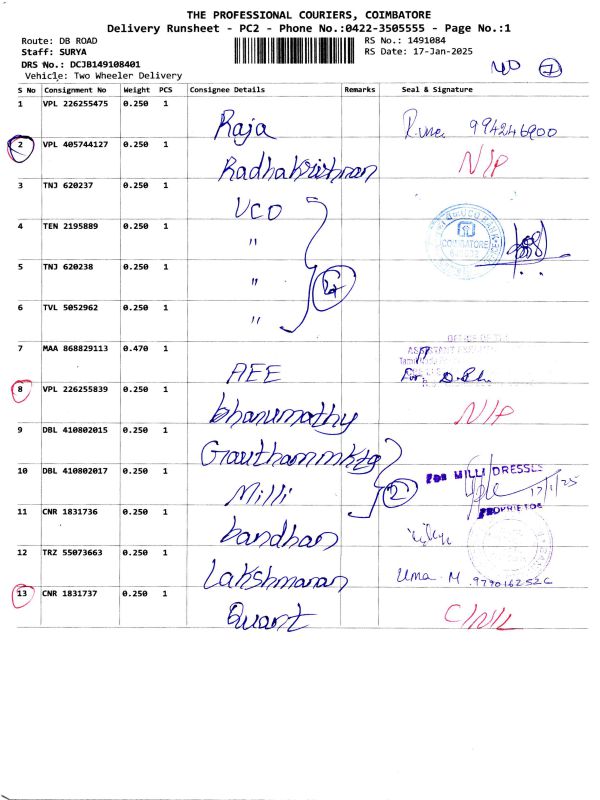 THE PROFESSIONAL COURIERS, COIMBATORE
Delivery Runsheet - PC2 - Phone No.:0422-3505555 - Page No.:1
Route: DB ROAD
RS No.: 1491084
Staff: SURYA
RS Date: 17-Jan-2025
DRS No.: DCJB149108401
Vehicle: Two Wheeler Delivery
S No Consignment No Weight PCS Consignee Details Remarks Seal & Signature
1 VPL 226255475 0.250 1 Raja 994246900
2 VPL 405744127 0.250 1 Radhakrishnan N/P
3 TNJ 620237 0.250 1 UCO
4 TEN 2195889 0.250 1 " COIMBATORE
5 TNJ 620238 0.250 1 " 4
6 TVL 5052962 0.250 1 "
7 MAA 868829113 0.470 1 AEE For
8 VPL 226255839 0.250 1 bhanumathy N/P
9 DBL 410802015 0.250 1 Gauthammktg
10 DBL 410802017 0.250 1 Milli 2 FOR MILLI DRESSES 17/1/25
PROPRIETOR
11 CNR 1831736 0.250 1 bandhan
12 TRZ 55073663 0.250 1 Lakshmanan Uma M. 9790162526
13 CNR 1831737 0.250 1 Quant C/N/L